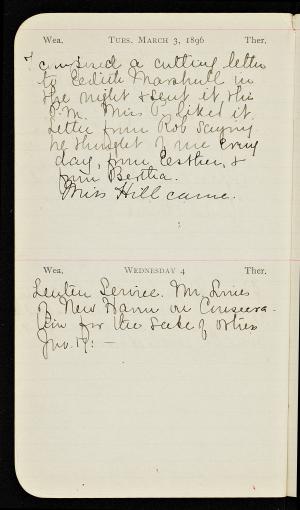 Wea. TUES. MARCH 3, 1896 Ther.
I composed a cutting letter
to Edith Marshall in
the night & sent it this
P.M. Miss P. liked it.
Letter from Rob saying
he thought of me every
day, from Esther, &
from Bertha.
Miss Hill came.
Wea. WEDNESDAY 4 Ther.
Lenten Service. Mr. Lines
of New Haven on Consecra-
tion for the sake of others
Jno. 17: —